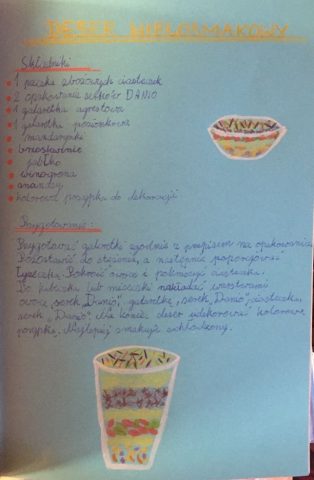 DESER WIELOSMAKOWY
Składniki:
1 paczka zbożowych ciasteczek
2 opakowania serków DANIO
1 galaretka agrestowa
1 galaretka poziomkowa
mandarynki
brzoskwinie
jabłko
winogrona
ananasy
kolorowa posypka do dekoracji
Przygotowanie:
Przygotować galaretki zgodnie z przepisem na opakowaniu.
Pozostawić do stężenia, a następnie poporcjować
łyżeczką. Pokroić owoce i pokruszyć ciasteczka.
Do kubeczka lub miseczki nakładać warstwami
owoce, serek "Danio", galaretkę, serek "Danio", ciasteczka,
serek "Danio". Na koniec deser udekorować kolorową
posypką. Najlepiej smakuje schłodzony.